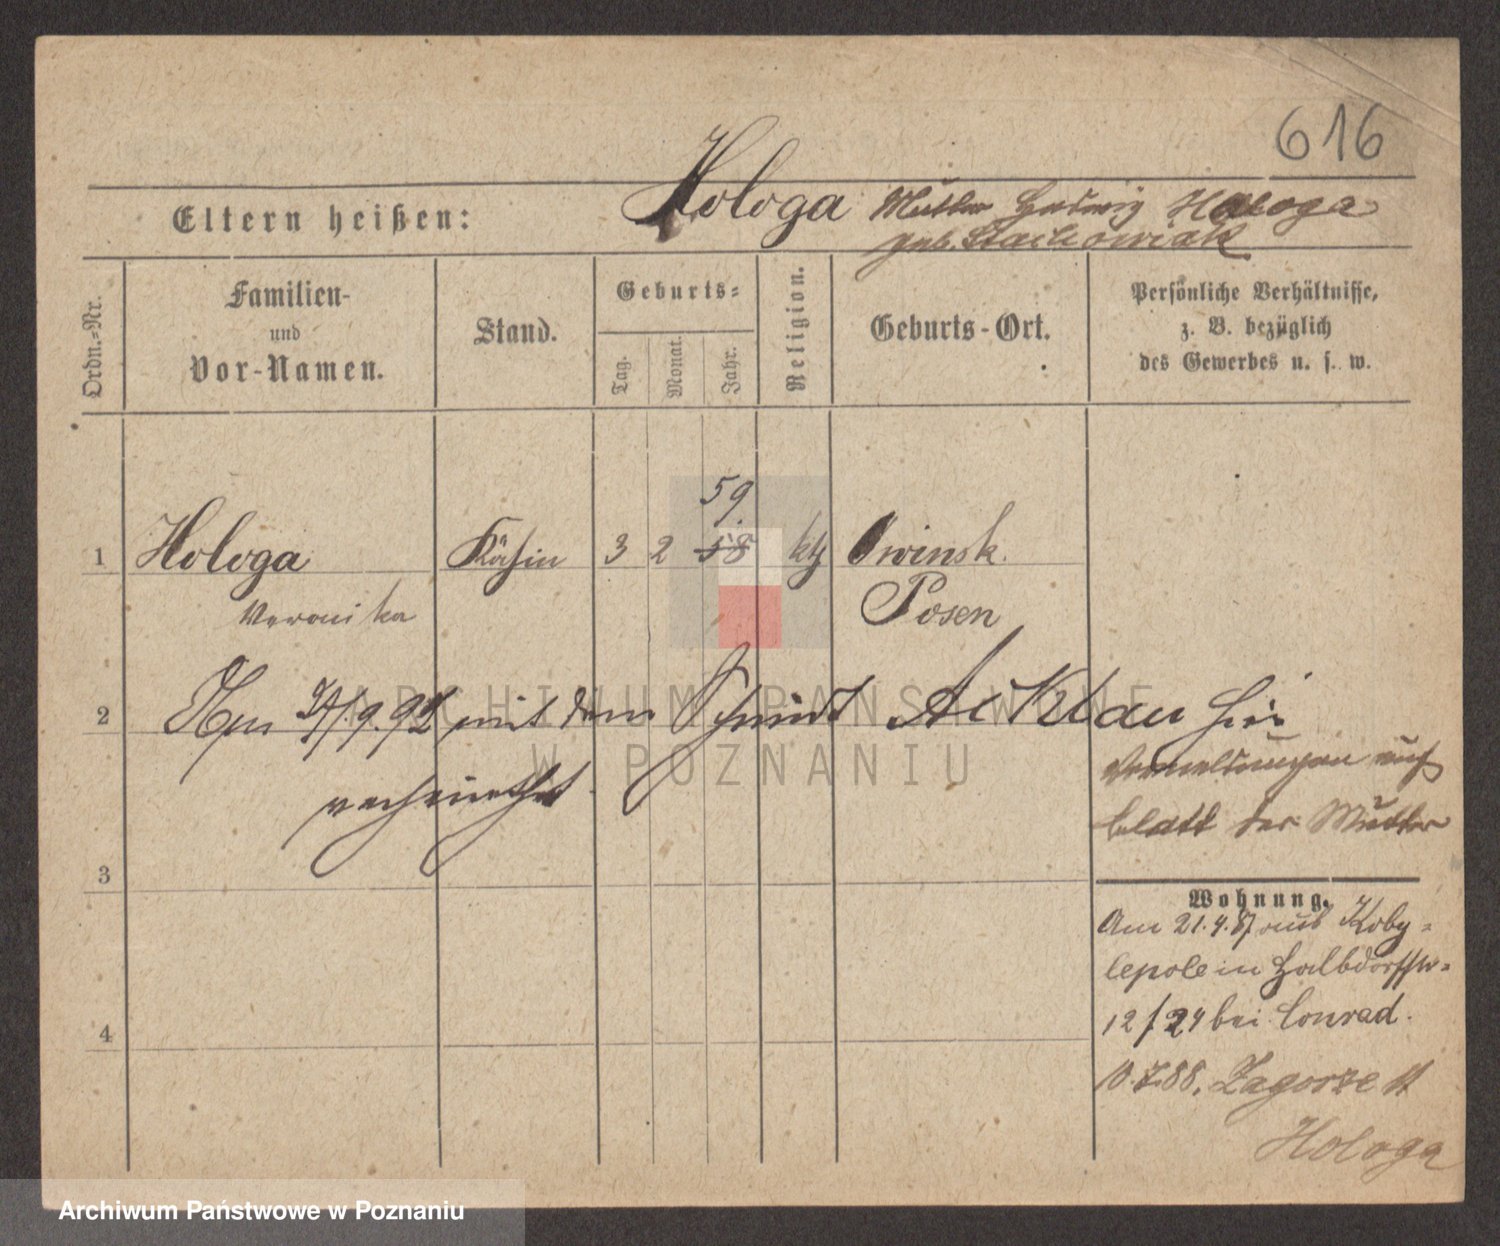 616
Eltern heißen: Hologa Mutter Hedwig Hologa
geb. Stachowiak
Ordn.-Nr.
Familien-
und
Vor-Namen.
Stand.
Geburts-
Tag.
Monat.
Jahr.
Religion.
Geburts-Ort.
Persönliche Verhältnisse,
z. B. bezüglich
des Gewerbes u. s. w.
59
1 Hologa Köchin 3 2 58 kth Owinsk.
Veronika Posen
2 mit dem Schmidt hier
verheirathet.
Vermeldungen auf
blatt der Mutter
3
Wohnung.
Am 21.4.87 aus Koby-
lepole in Halbdorffstr-
12/24 bei Conrad.
4
10.7.88. Zagorze 11
Hologa
ARCHIWUM PAŃSTWOWE
W POZNANIU
Archiwum Państwowe w Poznaniu